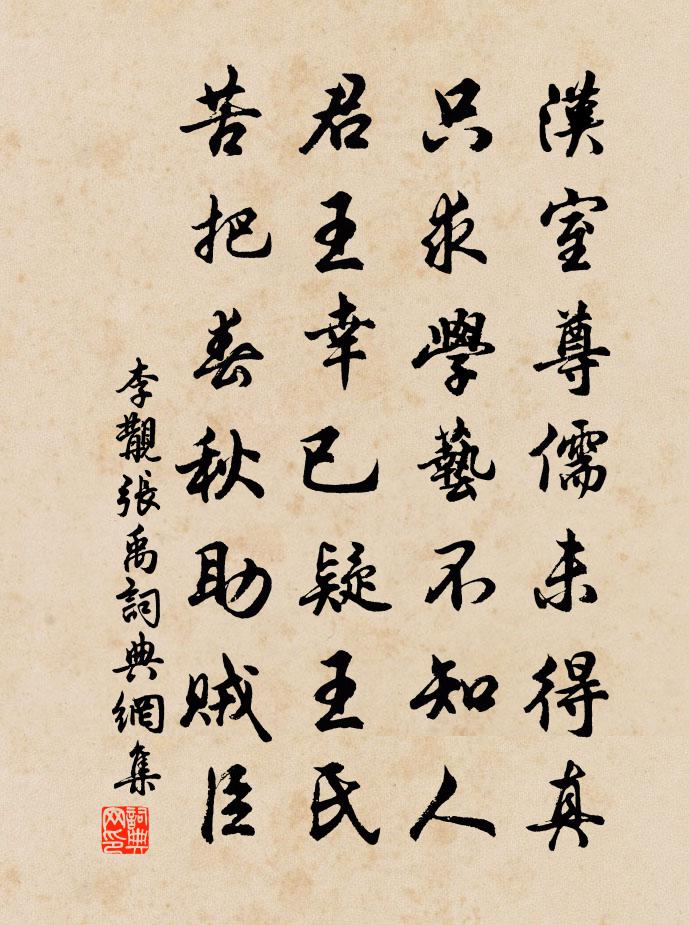 漢室尊儒未得真
只求學藝不知人
君王幸已疑王氏
苦把春秋助賊臣
李覯張禹詞典網集
詞典网印